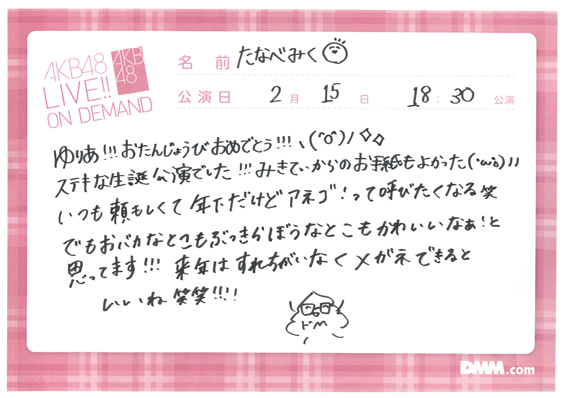 AKB48
LIVE!!
ON DEMAND
AKB
48
名 前 たなべみく
公演日 2月 15日 18:30 公演
ゆりあ!!!おたんじょうびおめでとう!!!ヽ(^o^)ノ
ステキな生誕公演でした!!!みきてぃからのお手紙もよかった(´ω`)
いつも頼もしくて年下だけどアネゴ!って呼びたくなる笑
でもおバカなとこもぶっきらぼうなとこもかわいいなぁ!と
思ってます!!!来年はすれちがいなくメガネできると
いいね笑笑!!!!
ドM
DMM.com